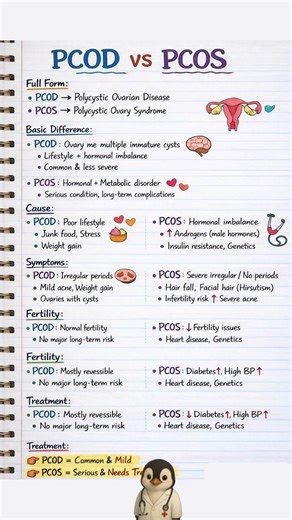 PCOD vs PCOS
Full Form:
• PCOD → Polycystic Ovarian Disease
• PCOS → Polycystic Ovary Syndrome
Basic Difference:
• PCOD : Ovary me multiple immature cysts
• Lifestyle + hormonal imbalance
• Common & less severe
• PCOS : Hormonal + Metabolic disorder
• Serious condition, long-term complications
Cause:
• PCOD : Poor lifestyle
• Junk food, Stress
• Weight gain
• PCOS : Hormonal imbalance
• ↑ Androgens (male hormones)
• Insulin resistance, Genetics
Symptoms:
• PCOD : Irregular periods
• Mild acne, Weight gain
• Ovaries with cysts
• PCOS : Severe irregular / No periods
• Hair fall, Facial hair (Hirsutism)
• Infertility risk ↑ Severe acne
Fertility:
• PCOD : Normal fertility
• No major long-term risk
• PCOS : ↓ Fertility issues
• Heart disease, Genetics
Fertility:
• PCOD : Mostly revessible
• No major long-term risk
• PCOS : Diabetes↑, High BP ↑
• Heart disease, Genetics
Treatment:
• PCOD : Mostly revessible
• No major long-term risk
• PCOS : ↓ Diabetes↑, High BP ↑
• Heart disease, Genetics
Treatment:
PCOD = Common & Mild
PCOS = Serious & Needs